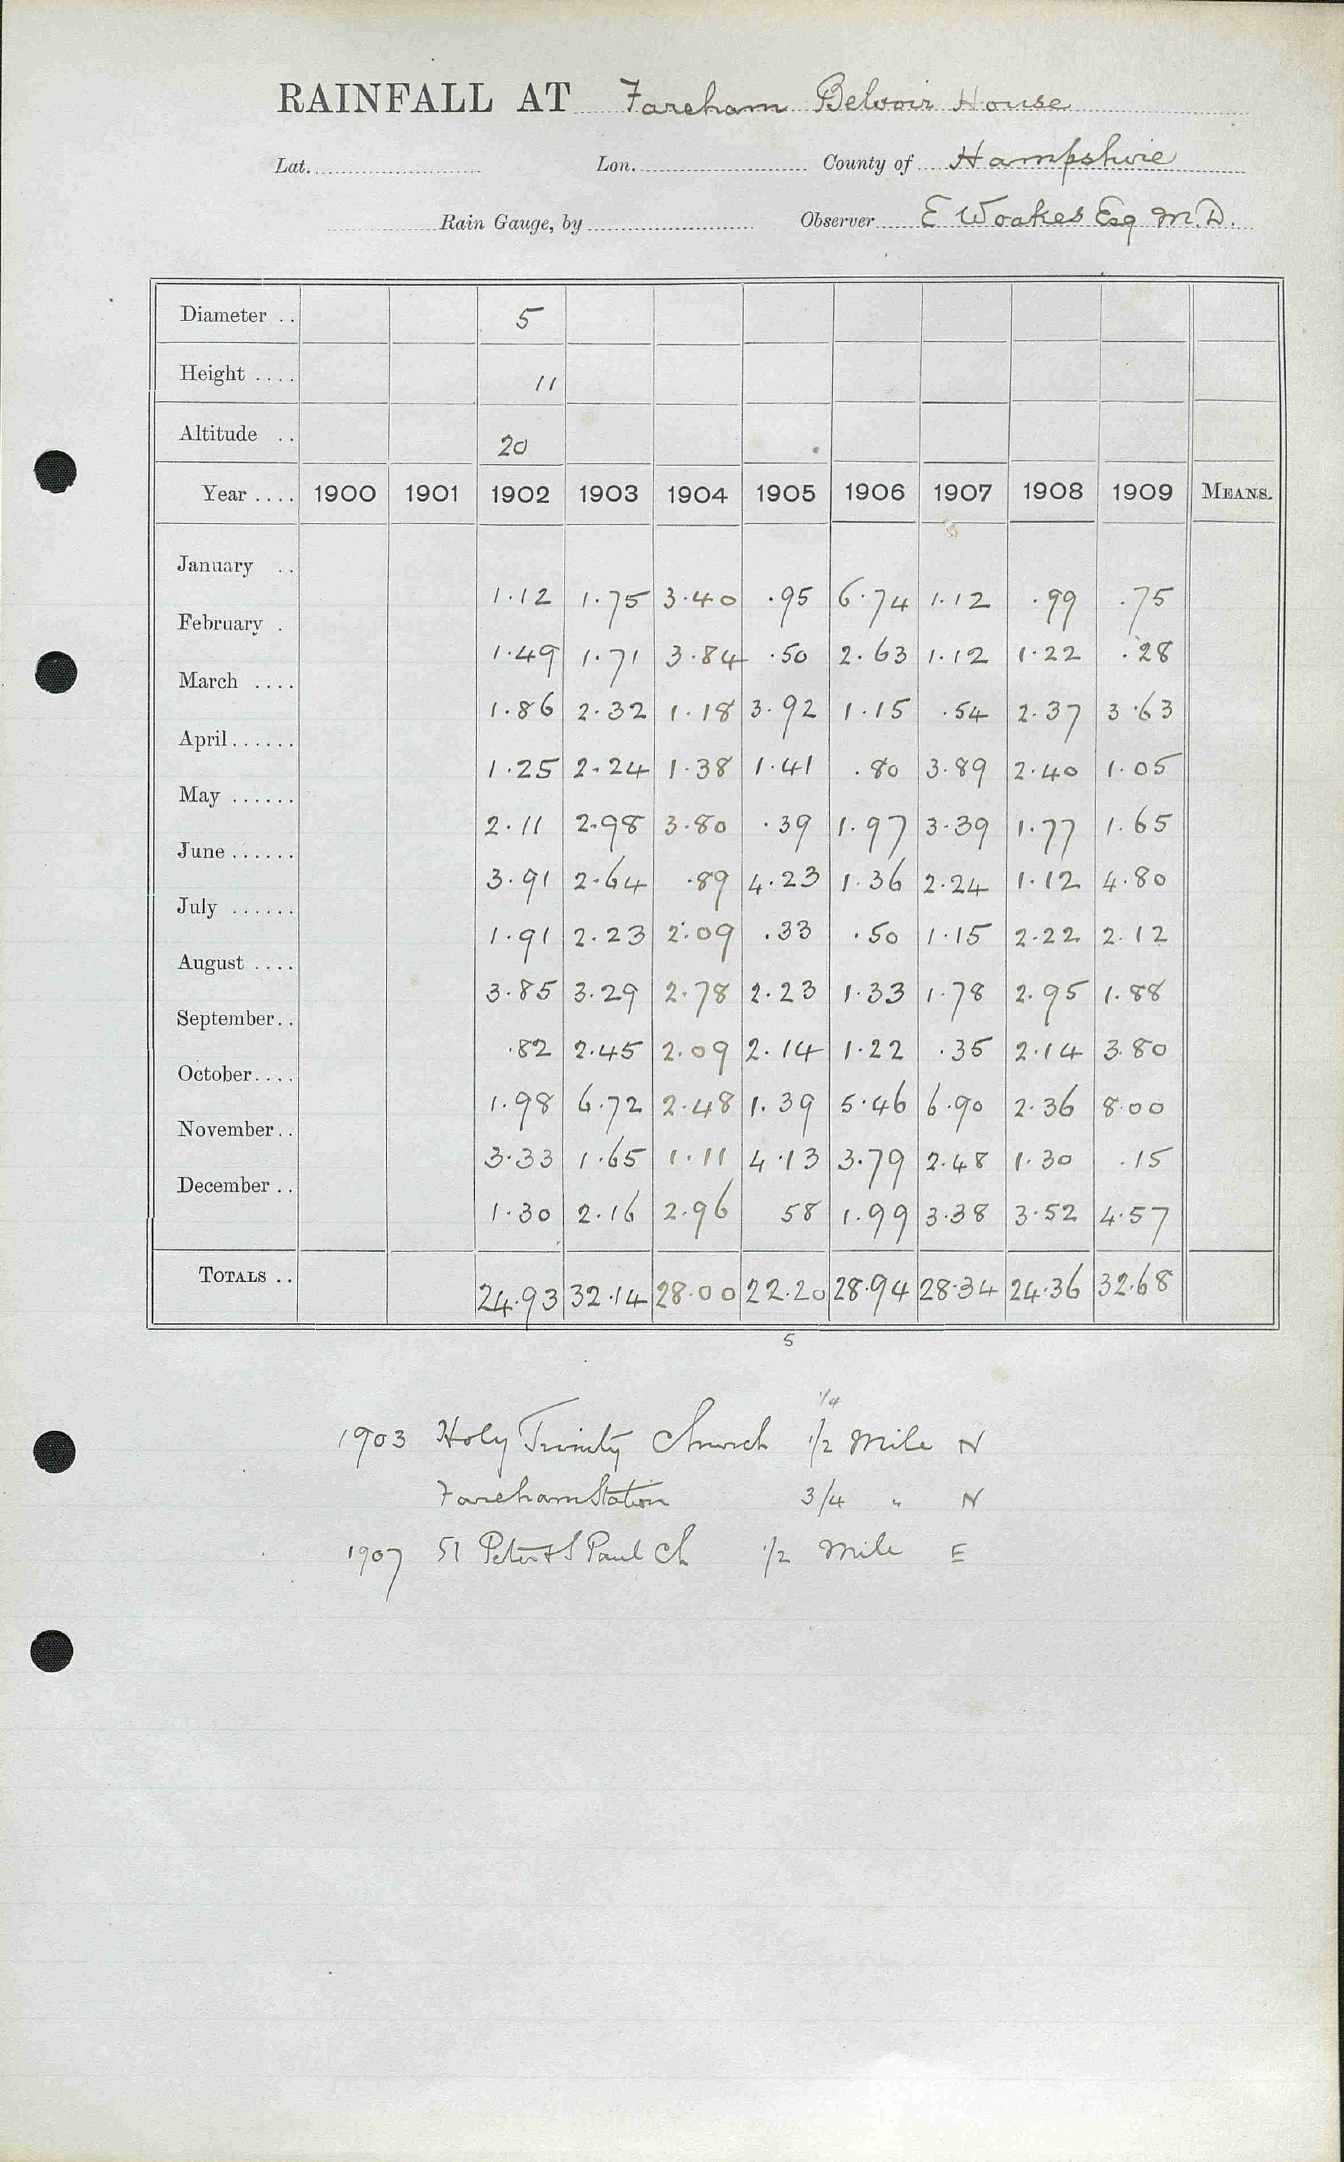 RAINFALL AT Fareham Belvoir House
Lat. Lon. County of Hampshire
Rain Gauge, by Observer E Woakes Esq M.D.
Diameter .. 5
Height .... 11
Altitude .. 20
Year .... 1900 1901 1902 1903 1904 1905 1906 1907 1908 1909 MEANS.
January .. 1.12 1.75 3.40 .95 6.74 1.12 .99 .75
February . 1.49 1.71 3.84 .50 2.63 1.12 1.22 .28
March .... 1.86 2.32 1.18 3.92 1.15 .54 2.37 3.63
April ...... 1.25 2.24 1.38 1.41 .80 3.89 2.40 1.05
May ...... 2.11 2.98 3.80 .39 1.97 3.39 1.77 1.65
June ...... 3.91 2.64 .89 4.23 1.36 2.24 1.12 4.80
July ...... 1.91 2.23 2.09 .33 .50 1.15 2.22 2.12
August .... 3.85 3.29 2.78 2.23 1.33 1.78 2.95 1.88
September .. .82 2.45 2.09 2.14 1.22 .35 2.14 3.80
October .... 1.98 6.72 2.48 1.39 5.46 6.90 2.36 8.00
November .. 3.33 1.65 1.11 4.13 3.79 2.48 1.30 .15
December .. 1.30 2.16 2.96 58 1.99 3.38 3.52 4.57
TOTALS .. 24.93 32.14 28.00 22.20 28.94 28.34 24.36 32.68
5
1/4
1903 Holy Trinity Church 1/2 Mile N
Fareham Station 3/4 " N
1907 St Peter & S Paul Ch 1/2 Mile E